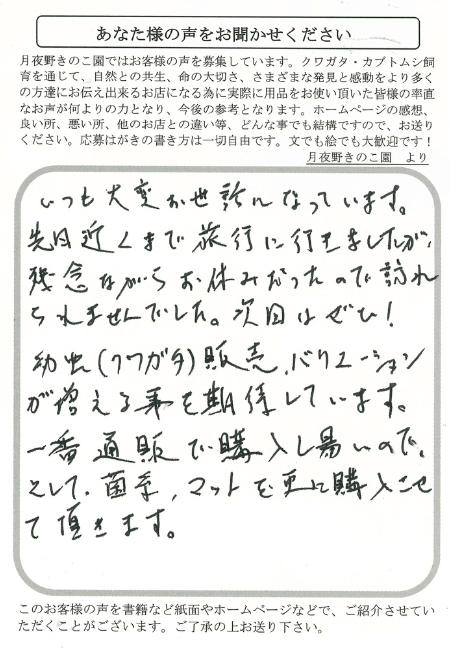 あなた様の声をお聞かせください
月夜野きのこ園ではお客様の声を募集しています。クワガタ・カブトムシ飼
育を通じて、自然との共生、命の大切さ、さまざまな発見と感動をより多く
の方達にお伝え出来るお店になる為に実際に用品をお使い頂いた皆様の率直
なお声が何よりの力となり、今後の参考となります。ホームページの感想、
良い所、悪い所、他のお店との違い等、どんな事でも結構ですので、お送り
ください。応募はがきの書き方は一切自由です。文でも絵でも大歓迎です！
月夜野きのこ園　より
いつも大変お世話になっています。
先日近くまで旅行に行きましたが、
残念ながらお休みだったので訪れ
られませんでした。次回はぜひ！
幼虫(クワガタ)販売、バリエーション
が増える事を期待しています。
一番通販で購入し易いので。
そして、菌糸、マットを更に購入させ
て頂きます。
このお客様の声を書籍など紙面やホームページなどで、ご紹介させてい
ただくことがございます。ご了承の上お送り下さい。